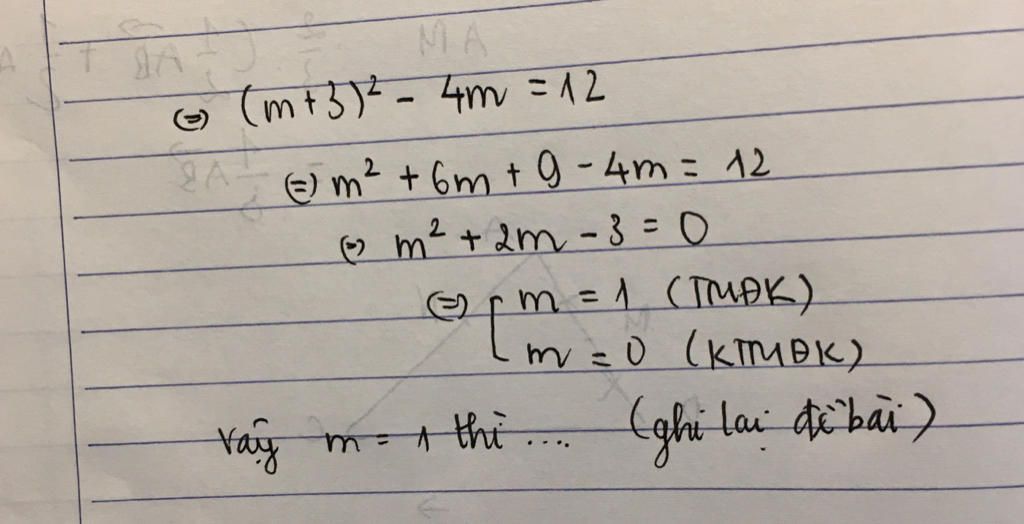 ⇔ (m+3)² - 4m = 12
⇔ m² + 6m + 9 - 4m = 12
⇔ m² + 2m - 3 = 0
⇔ [ m = 1 (TMĐK)
m = 0 (KTMĐK)
vậy m = 1 thì .... (ghi lại đề bài)